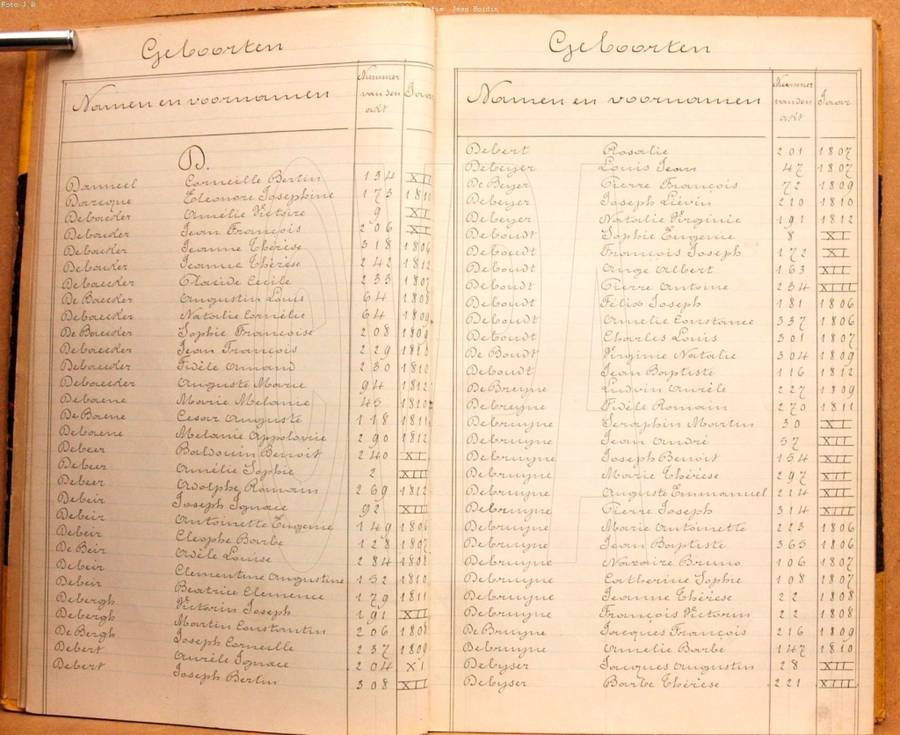 Foto J.B
Jean Bordin
Geboorten
Namen en voornamen Nummer van den akt Jaar
D.
Danneel Corneille Bertin 134 XII
Darreque Eleonore Josephine 173 1810
Debaeder Amélie Victoire 9 XII
Debaeder Jean François 206 XII
Debaeder Jeanne Thérèse 318 1806
Debaeder Jeanne Thérèse 242 1812
Debaeder Placide Cécile 233 1807
De Baeder Augustin Louis 64 1808
Debaeder Natalie Cornélie 64 1809
De Baeder Sophie Françoise 208 1809
Debaeder Jean François 229 1810
Debaeder Fidèle Amand 230 1810
Debaeder Auguste Marie 94 1812
Debaene Marie Melanie 45 1810
De Baene Cesar Auguste 118 1811
Debaene Melanie Appolonie 290 1812
Debeer Balduin Benoit 240 XI
Debeer Amélie Sophie 2 XIII
Debeer Adolphe Romain 269 1812
Debeir Joseph Ignace 92 XII
Debeir Antoinette Eugenie 149 1806
Debeir Cleophe Barbe 128 1807
De Beir Adèle Louise 284 1808
Debeir Clementine Augustine 152 1810
Debeir Beatrice Clemence 179 1811
Debergh Victorin Joseph 191 XII
Debergh Martin Constantin 206 1808
De Bergh Joseph Corneille 237 1809
Debert Aurèle Ignace 204 XI
Debert Joseph Bertin 308 XIII
Geboorten
Namen en voornamen Nummer van den akt Jaar
Debert Rosalie 201 1807
Debeyer Louis Jean 47 1807
De Beyer Pierre François 72 1809
Debeyer Joseph Liévin 210 1810
Debeyer Natalie Virginie 191 1812
Deboudt Sophie Eugenie 8 XI
Deboudt François Joseph 172 XI
Deboudt Ange Albert 163 XII
Deboudt Pierre Antoine 254 XIII
Deboudt Félix Joseph 181 1806
Deboudt Amelie Constance 337 1806
Deboudt Charles Louis 301 1807
De Boudt Virginie Natalie 304 1809
Deboudt Jean Baptiste 116 1812
De Breyne Ludvin Aurèle 227 1809
Debreyne Fidèle Romain 270 1811
Debruyne Seraphin Martin 30 XI
Debruyne Jean André 57 XII
Debruyne Joseph Benoit 154 XII
Debruyne Marie Thérèse 297 XII
Debruyne Auguste Emmanuel 214 XIII
Debruyne Pierre Joseph 314 XIII
Debruyne Marie Antoinette 223 1806
Debruyne Jean Baptiste 365 1806
Debruyne Nazaire Bruno 106 1807
Debruyne Catherine Sophie 108 1807
Debruyne Jeanne Thérèse 22 1808
Debruyne François Victorin 22 1808
De Bruyne Jacques François 216 1809
Debruyne Amelie Barbe 147 1810
Debyser Jacques Augustin 28 XII
Debyser Barbe Thérèse 221 XIII